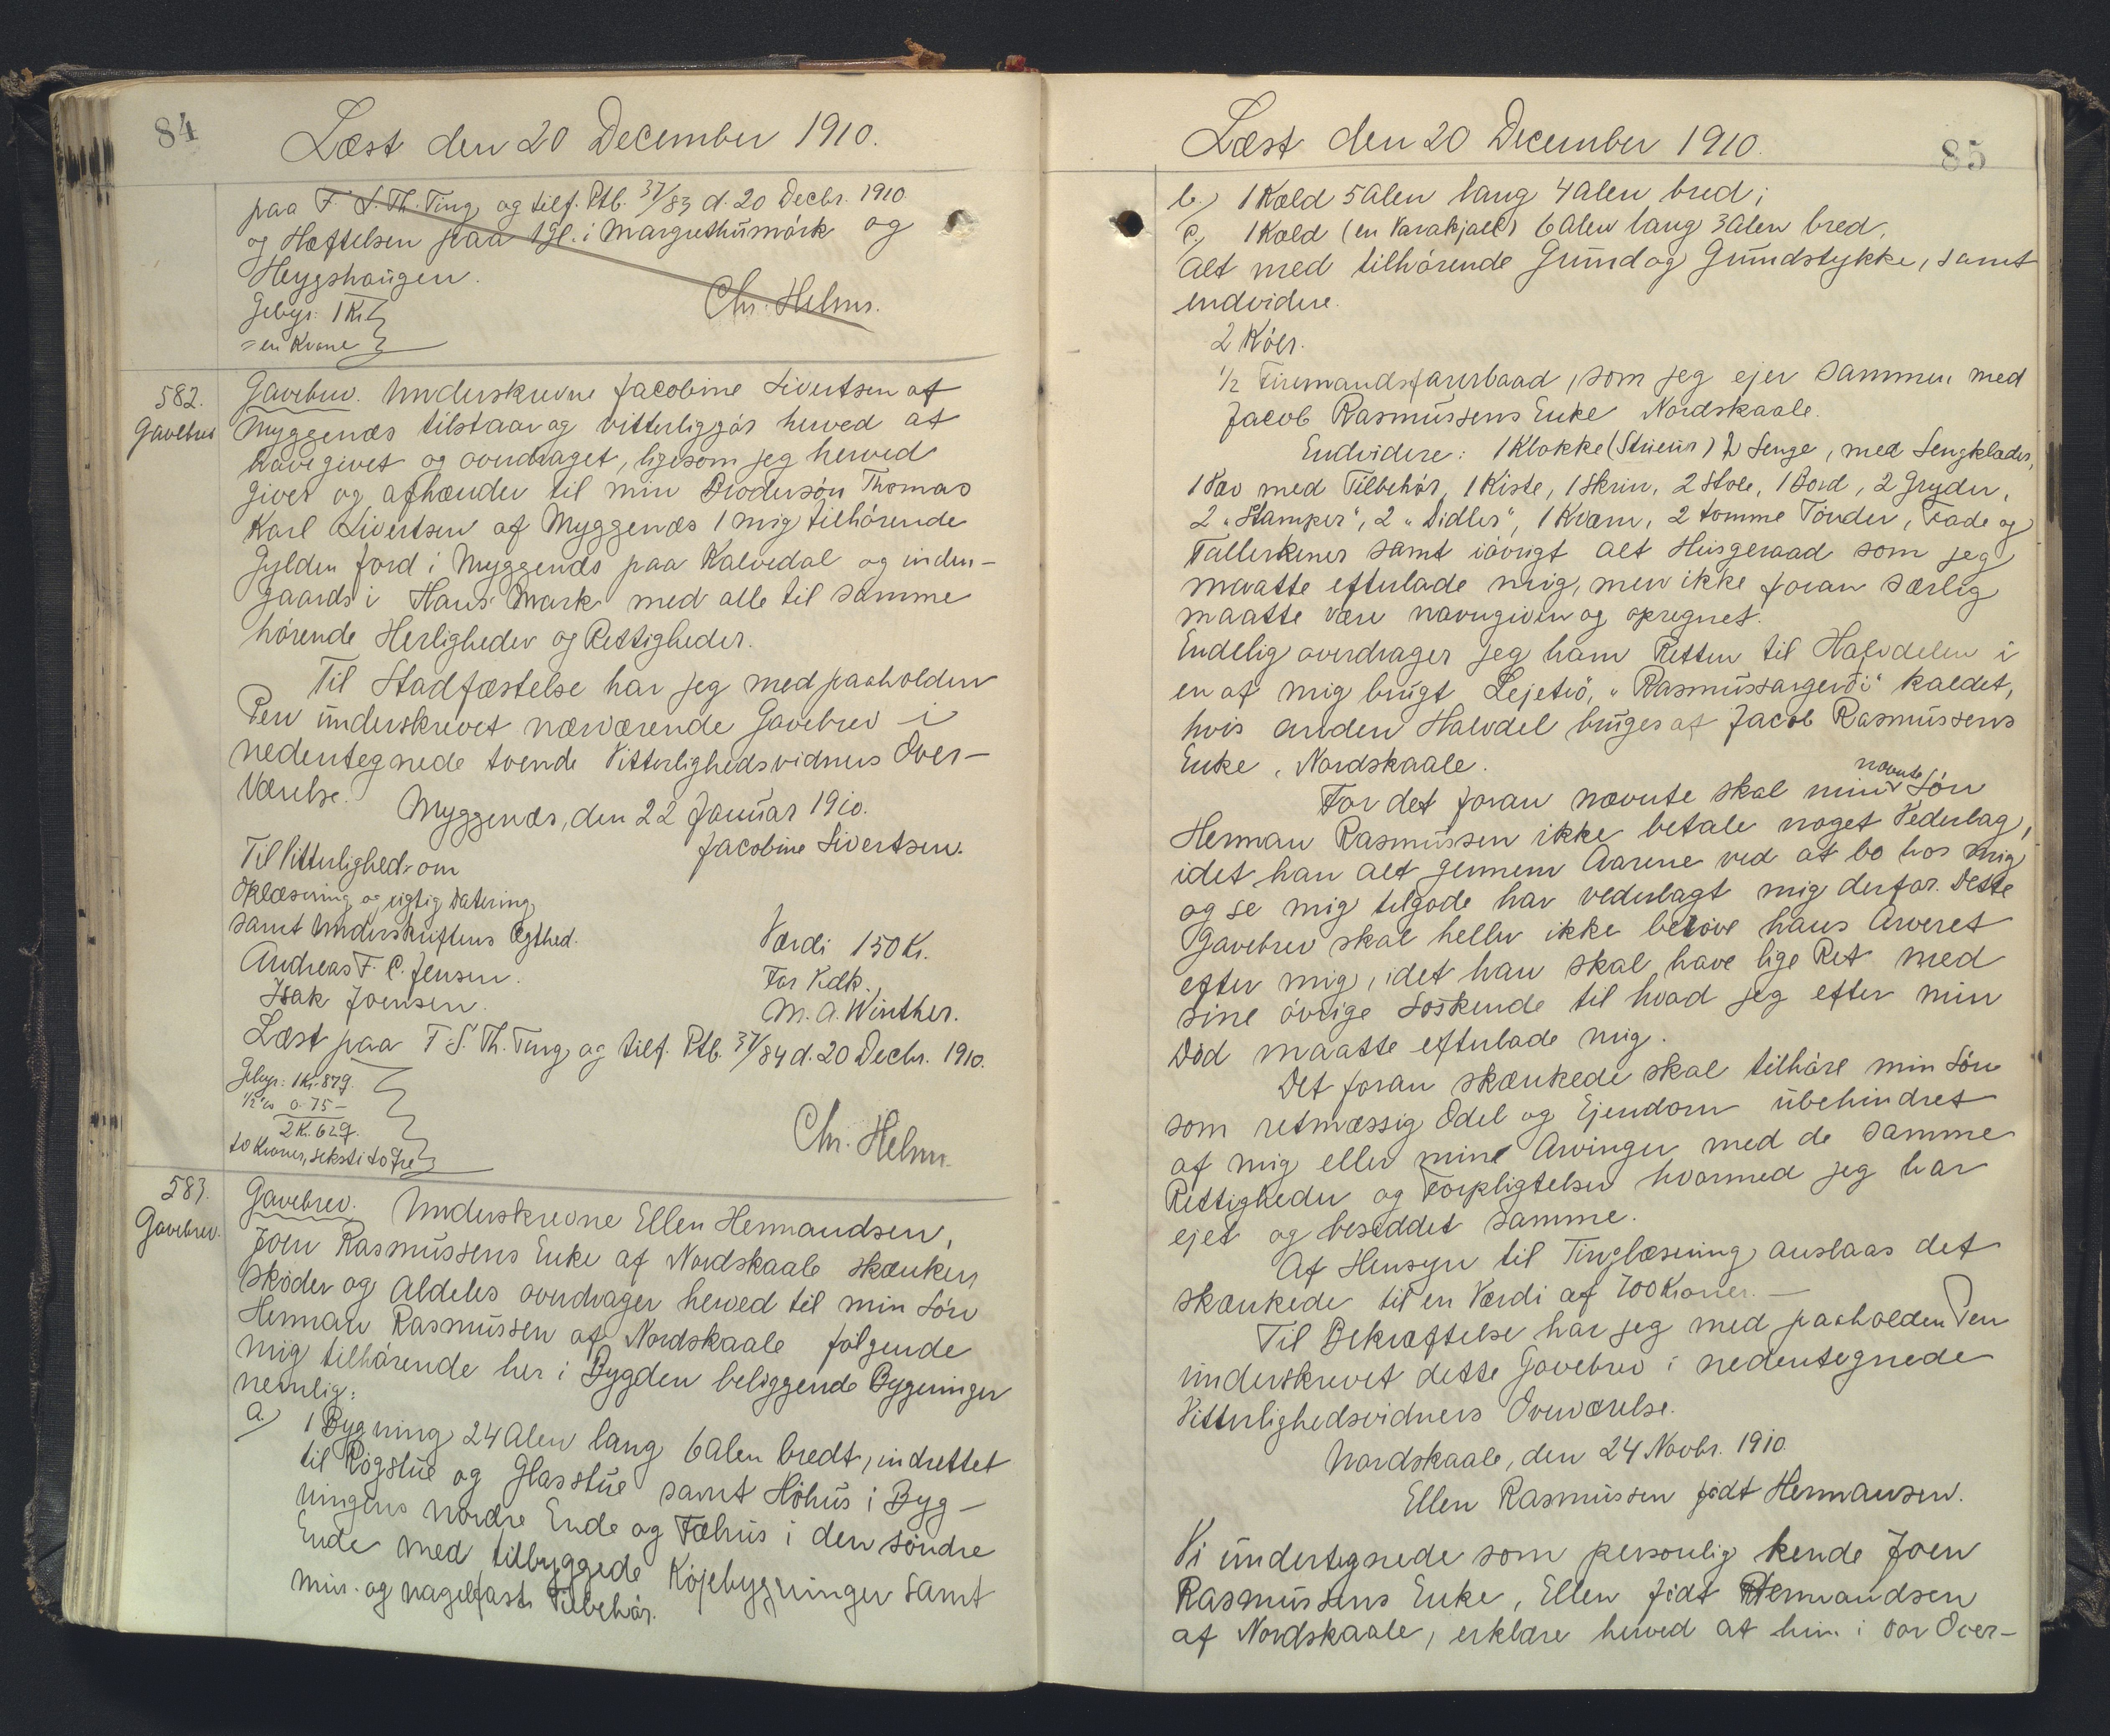 84
Læst den 20 December 1910.
paa F. S. Th. Ting og tilf. Ptb. 37/83 d. 20 Decbr. 1910
og Hæftelsen paa 1 gl. i Margrethumørk og
Heygshaugen.
Chr. Helms.
Gebyr: 1 Kr.
= en Krone
582.
Gavebrev
Gavebrev. Underskrevne Jacobine Sivertsen af
Myggenæs tilstaar og vitterliggør herved at
have givet og overdraget, ligesom jeg herved
giver og afhænder til min Brodersøn Thomas
Karl Sivertsen af Myggenæs 1 mig tilhørende
Gylden Jord i Myggenæs paa Kalvedal og inden-
gaards i Hans Mark med alle til samme
hørende Herligheder og Rettigheder.
Til Stadfæstelse har jeg med paaholden
Pen underskrevet nærværende Gavebrev i
nedentegnede tvende Vitterlighedsvidners Over-
værelse.
Myggenæs, den 22 Januar 1910.
Jacobine Sivertsen.
Til Vitterlighed om
Oplæsning og rigtig Datering
samt Underskriftens Ægthed.
Andreas F. C. Jensen.
Isak Joensen.
Værdi 150 Kr.
For Kdk.
M. A. Winther.
Læst paa F. S. Th. Ting og tilf. Ptb. 37/84 d. 20 Decbr. 1910.
Gebyr: 1 Kr. 87 Ø.
1/2 % 0. 75 -
2 K. 62 Ø.
to Kroner, seksti to Øre
Chr. Helms.
583.
Gavebrev.
Gavebrev. Underskrevne Ellen Hermandsen,
Joen Rasmussens Enke af Nordskaale skænker
skøder og aldeles overdrager herved til min Søn
Herman Rasmussen af Nordskaale følgende
mig tilhørende her i Bygden beliggende Bygninger
nemlig:
a.) 1 Bygning 24 Alen lang 6 Alen bredt, indrettet
til Røgstue og Glasstue samt Høhus i Byg-
ningens nordre Ende og Fæhus i den søndre
Ende med tilbyggede Køjebygninger samt
mur- og nagelfaste Tilbehør.
85
Læst den 20 December 1910.
b.) 1 Kæld 5 Alen lang 4 Alen bred;
c.) 1 Kæld (en Varakjall) 6 Alen lang 3 Alen bred,
alt med tilhørende Grund og Grundstykke, samt
endvidere.
2 Køer.
1/2 Firemandsfarerbaad, som jeg ejer sammen med
Jacob Rasmussens Enke Nordskaale.
Endvidere: 1 Klokke (Stueur) 2 Senge, med Sengklæder,
1 Væv med Tilbehør, 1 Kiste, 1 Skrin, 2 Stole, 1 Bord, 2 Gryder,
2 "Stamper", 2 "Didler", 1 Kværn, 2 tomme Tønder, Fade og
Tallerkener samt iøvrigt alt Husgeraad som jeg
maatte efterlade mig, men ikke foran særlig
maatte være navngiven og opregnet.
Endelig overdrager jeg ham Retten til Halvdelen i
en af mig brugt Lejetrø, "Rasmussargerði" kaldet,
hvis anden Halvdel bruges af Jacob Rasmussens
Enke, Nordskaale.
For det foran nævnte skal min nævnte Søn
Herman Rasmussen ikke betale noget Vederlag,
idet han alt gennem Aarene ved at bo hos mig
og se mig tilgode har vederlagt mig derfor. Dette
Gavebrev skal heller ikke berøve hans Arveret
efter mig, idet han skal have lige Ret med
sine øvrige Søskende til hvad jeg efter min
Død maatte efterlade mig.
Det foran skænkede skal tilhøre min Søn
som retmæssig Odel og Ejendom ubehindret
af mig eller mine Arvinger med de samme
Rettigheder og Forpligtelser hvormed jeg har
ejet og besiddet samme.
Af Hensyn til Tinglæsning anslaas det
skænkede til en Værdi af 700 Kroner. —
Til Bekræftelse har jeg med paaholden Pen
underskrevet dette Gavebrev i nedentegnede
Vitterlighedsvidners Overværelse.
Nordskaale, den 24 Novbr. 1910.
Ellen Rasmussen født Hermansen.
Vi undertegnede som personlig kende Joen
Rasmussens Enke, Ellen født Hermandsen
af Nordskaale, erklære herved at hun i vor Over-